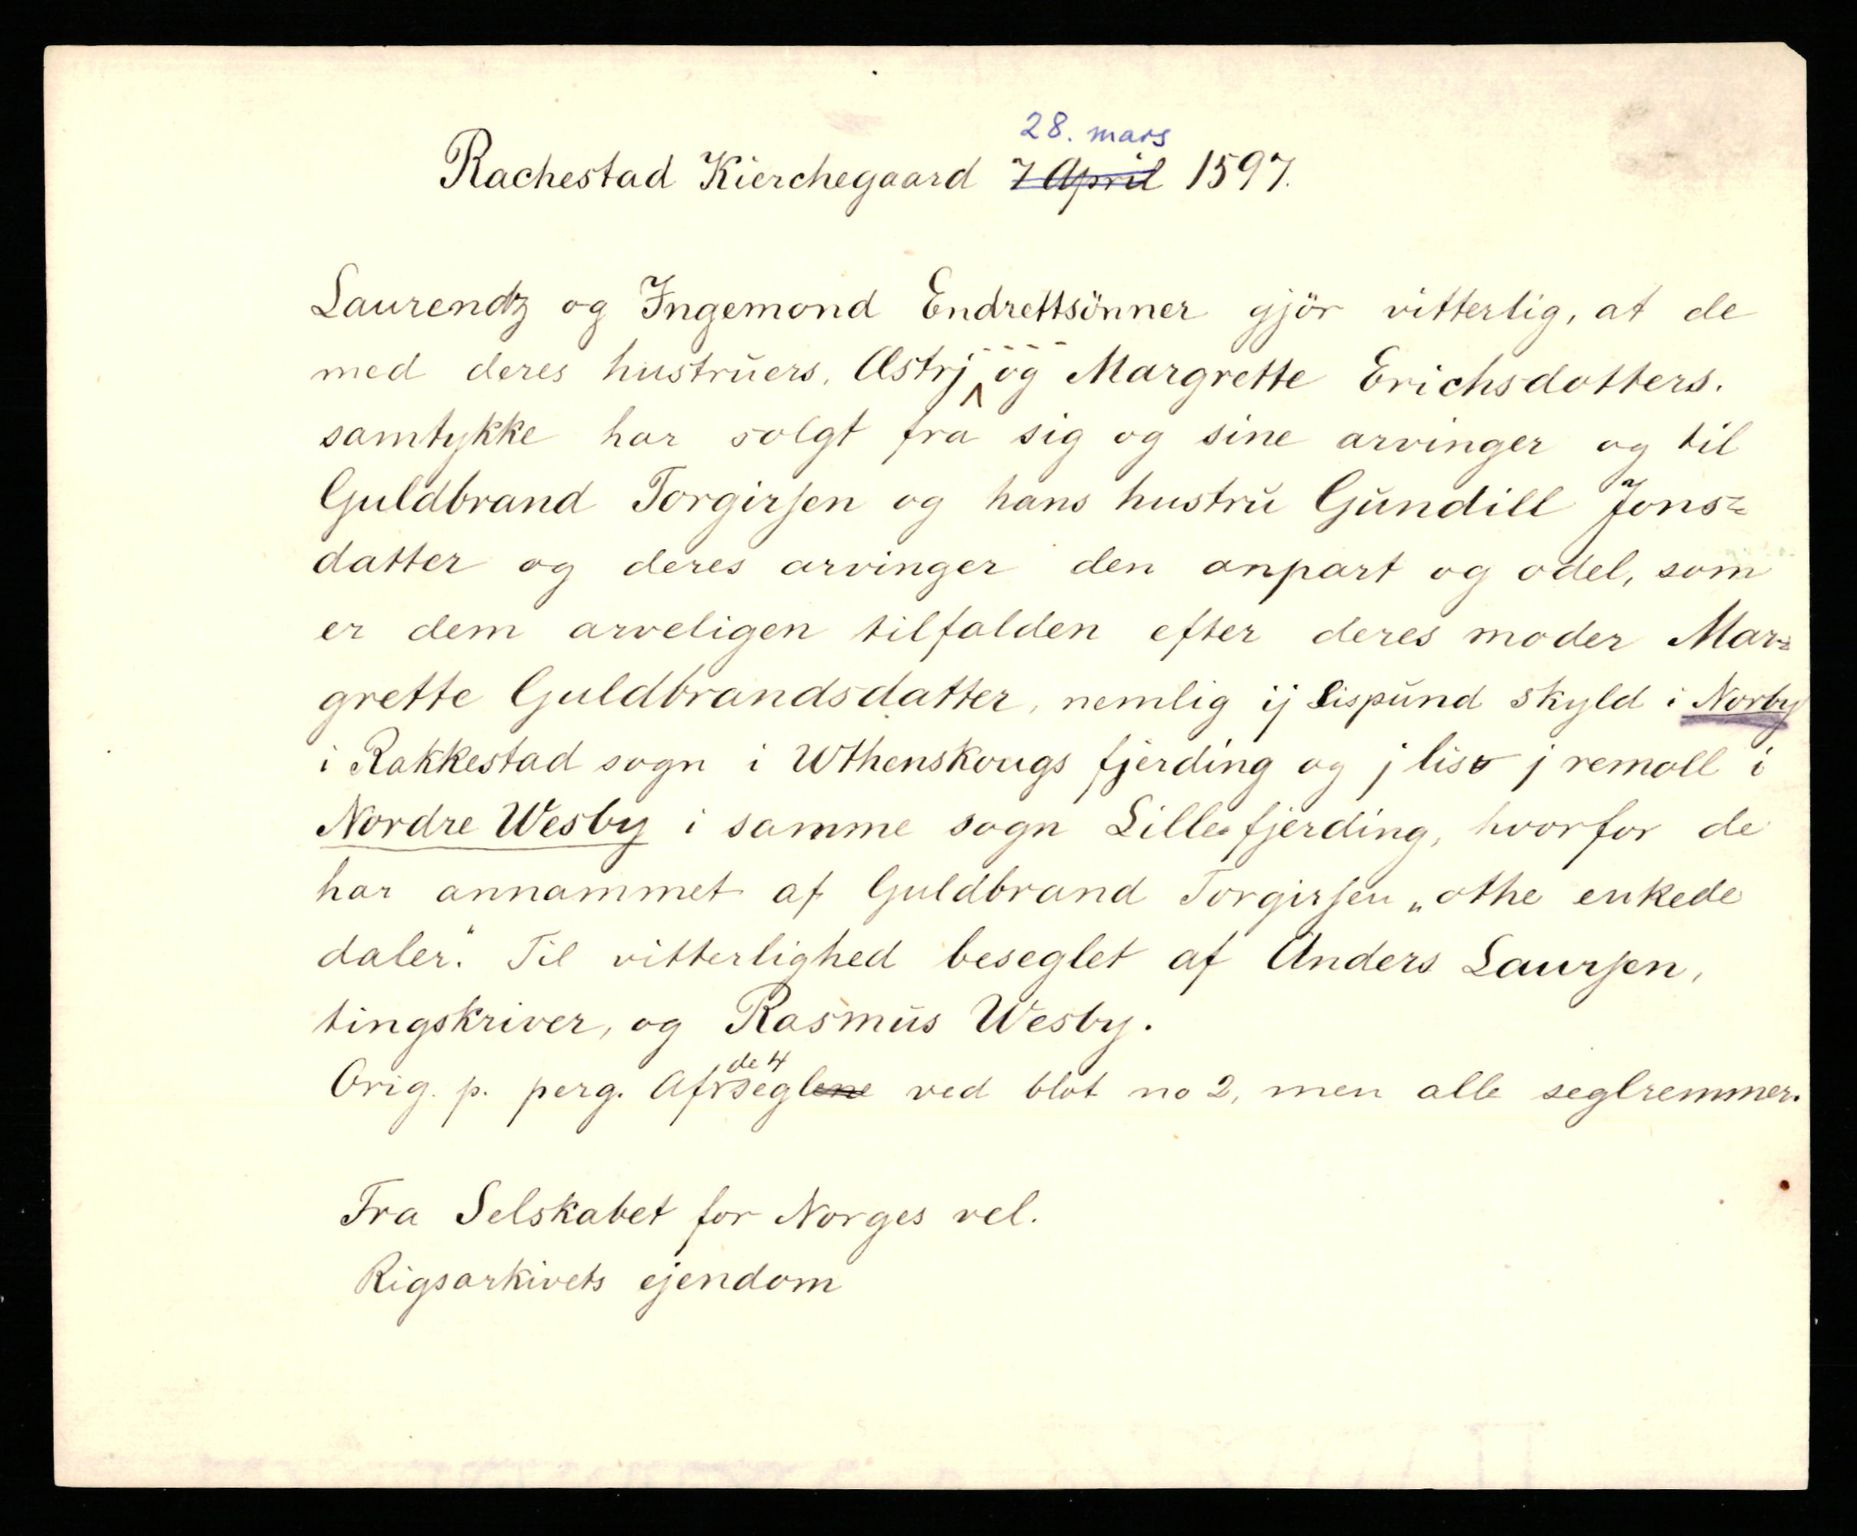 28. mars
Rachestad Kierchegaard 7 April 1597.
Laurendz og Ingemond Endrettsönner gjör vitterlig, at de
med deres hustruers, Æstrj og Margrette Erichsdotters.
samtykke har solgt fra sig og sine arvinger og til
Guldbrand Torgirsen og hans hustru Gundill Jons=
datter og deres arvinger den anpart og odel, som
er dem arveligen tilfalden efter deres moder Mar=
grette Guldbrandsdatter, nemlig ij Lispund skyld i Norby
i Rakkestad sogn i Wthenskougs fjerding og j lis j remoll i
Nordre Wesby i samme sogn Lille fjerding, hvorfor de
har annammet af Guldbrand Torgirsen „othe enkede
daler." Til vitterlighed beseglet af Anders Laursen,
tingskriver, og Rasmus Wesby.
de 4
Orig. p. perg. Af seglene ved blot no 2, men alle seglremmer.
Fra Selskabet for Norges vel.
Rigsarkivets ejendom